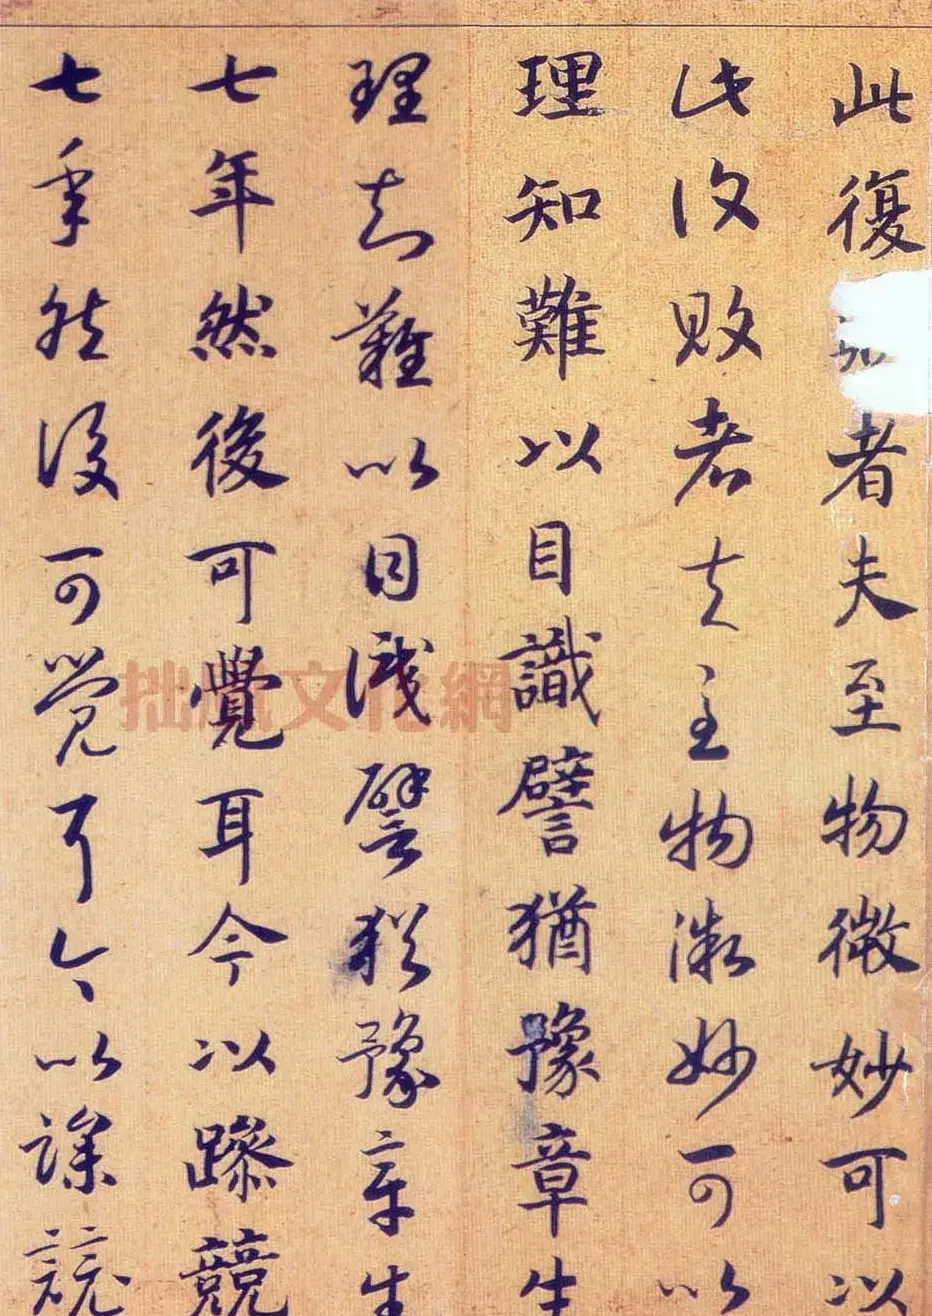 此復者夫至物微妙可以
此復敗者夫至物微妙可以
理知難以目識譬猶豫章生
理知難以目識譬猶豫章生
七年然後可覺耳今以躁競
七年然後可覺耳今以躁競
拙風文化網